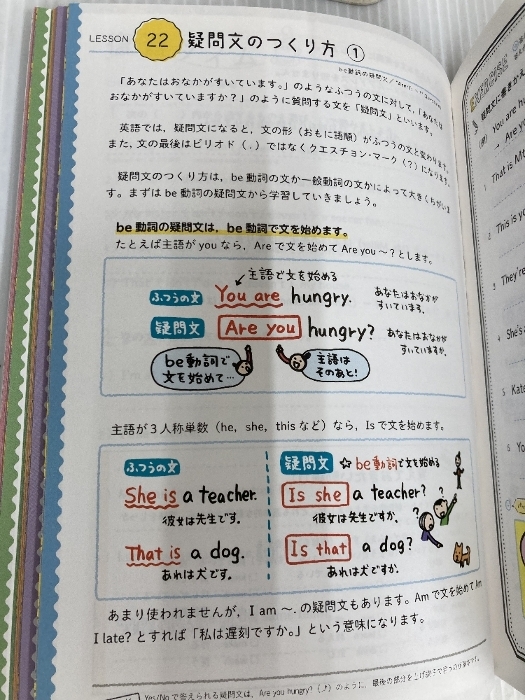 LESSON 22 疑問文のつくり方 ①
be動詞の疑問文
「あなたはおなかがすいています。」のようなふつうの文に対して、「あなたは
おなかがすいていますか?」のように質問する文を「疑問文」といいます。
英語では、疑問文になると、文の形(おもに語順)がふつうの文と変わります。
また、文の最後はピリオド(.)ではなくクエスチョン・マーク(?)になります。
疑問文のつくり方は、be動詞の文か一般動詞の文かによって大きくちがいま
す。まずはbe動詞の疑問文から学習していきましょう。
be動詞の疑問文は、be動詞で文を始めます。
たとえば主語がyouなら、Areで文を始めてAre you ~?とします。
主語で文を始める
ふつうの文 You are hungry. あなたはおなかが
すいています。
疑問文 Are you hungry? あなたはおなかが
すいていますか。
be動詞で
文を始めて…
主語は
そのあと!
主語が3人称単数(he, she, thisなど)なら、Isで文を始めます。
ふつうの文
She is a teacher.
彼女は先生です。
That is a dog.
あれは犬です。
疑問文 ☆be動詞で文を始める
Is she a teacher?
彼女は先生ですか。
Is that a dog?
あれは犬ですか。
あまり使われませんが、I am ~. の疑問文もあります。Amで文を始めてAm
I late?とすれば「私は遅刻ですか。」という意味になります。
Yes/Noで答えられる疑問文は、Are you hungry?(⤴)のように、最後の部分を上げ調子で
You are h
→ Are yo
1 That is Mt
2 This is yo
3 They're
4 She's
5 Kate
6 Yo